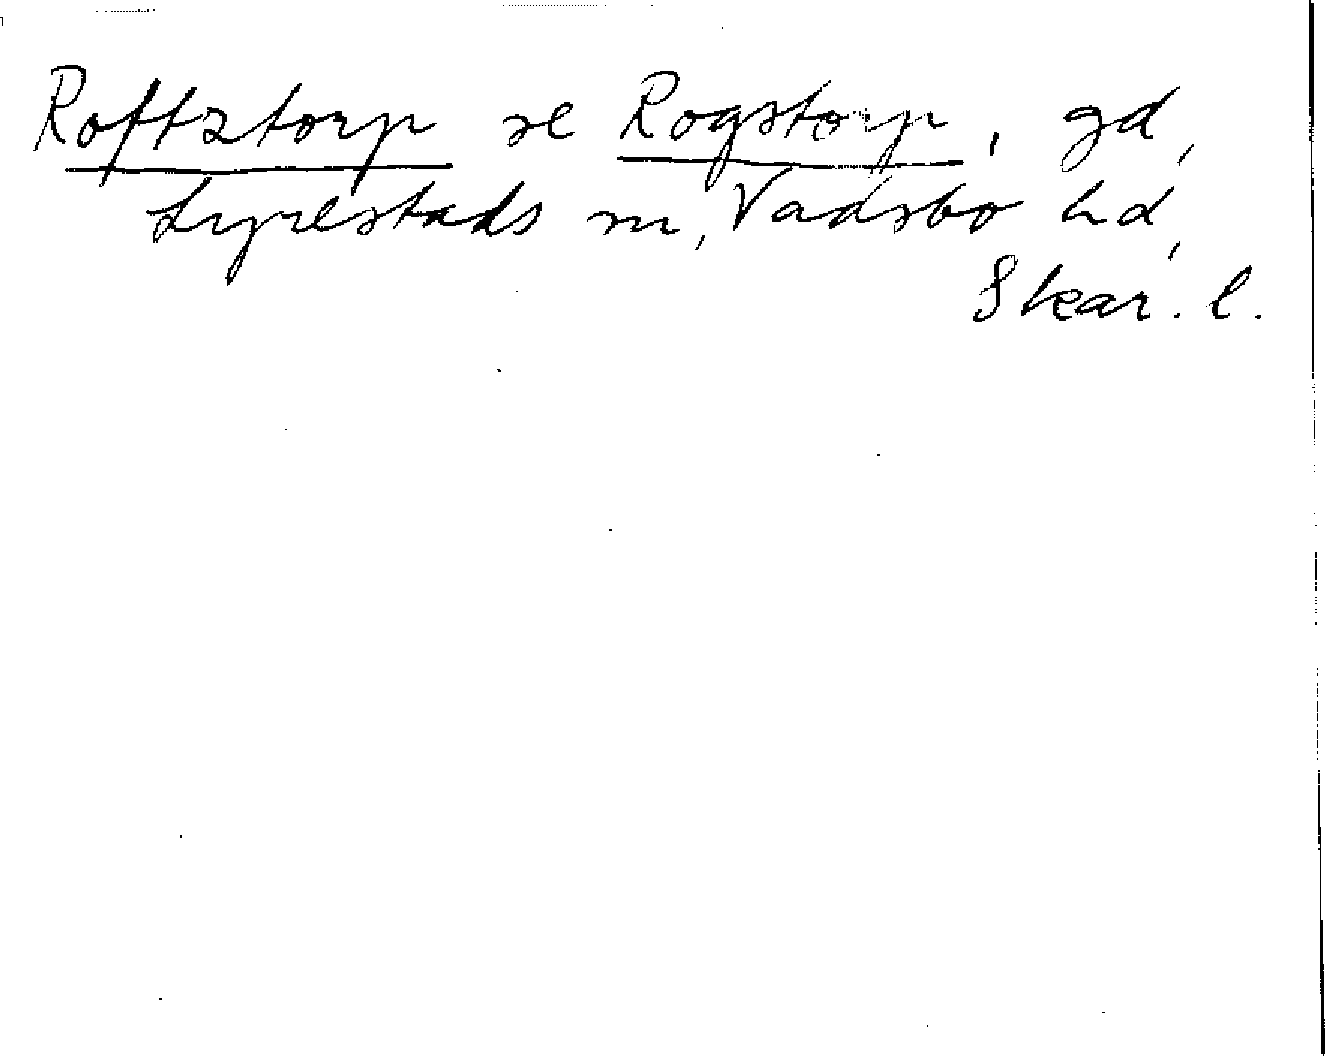 Roftztorp se Rogstorp, gd,
Lyrestads sn, Vadsbo hd,
Skar. l.